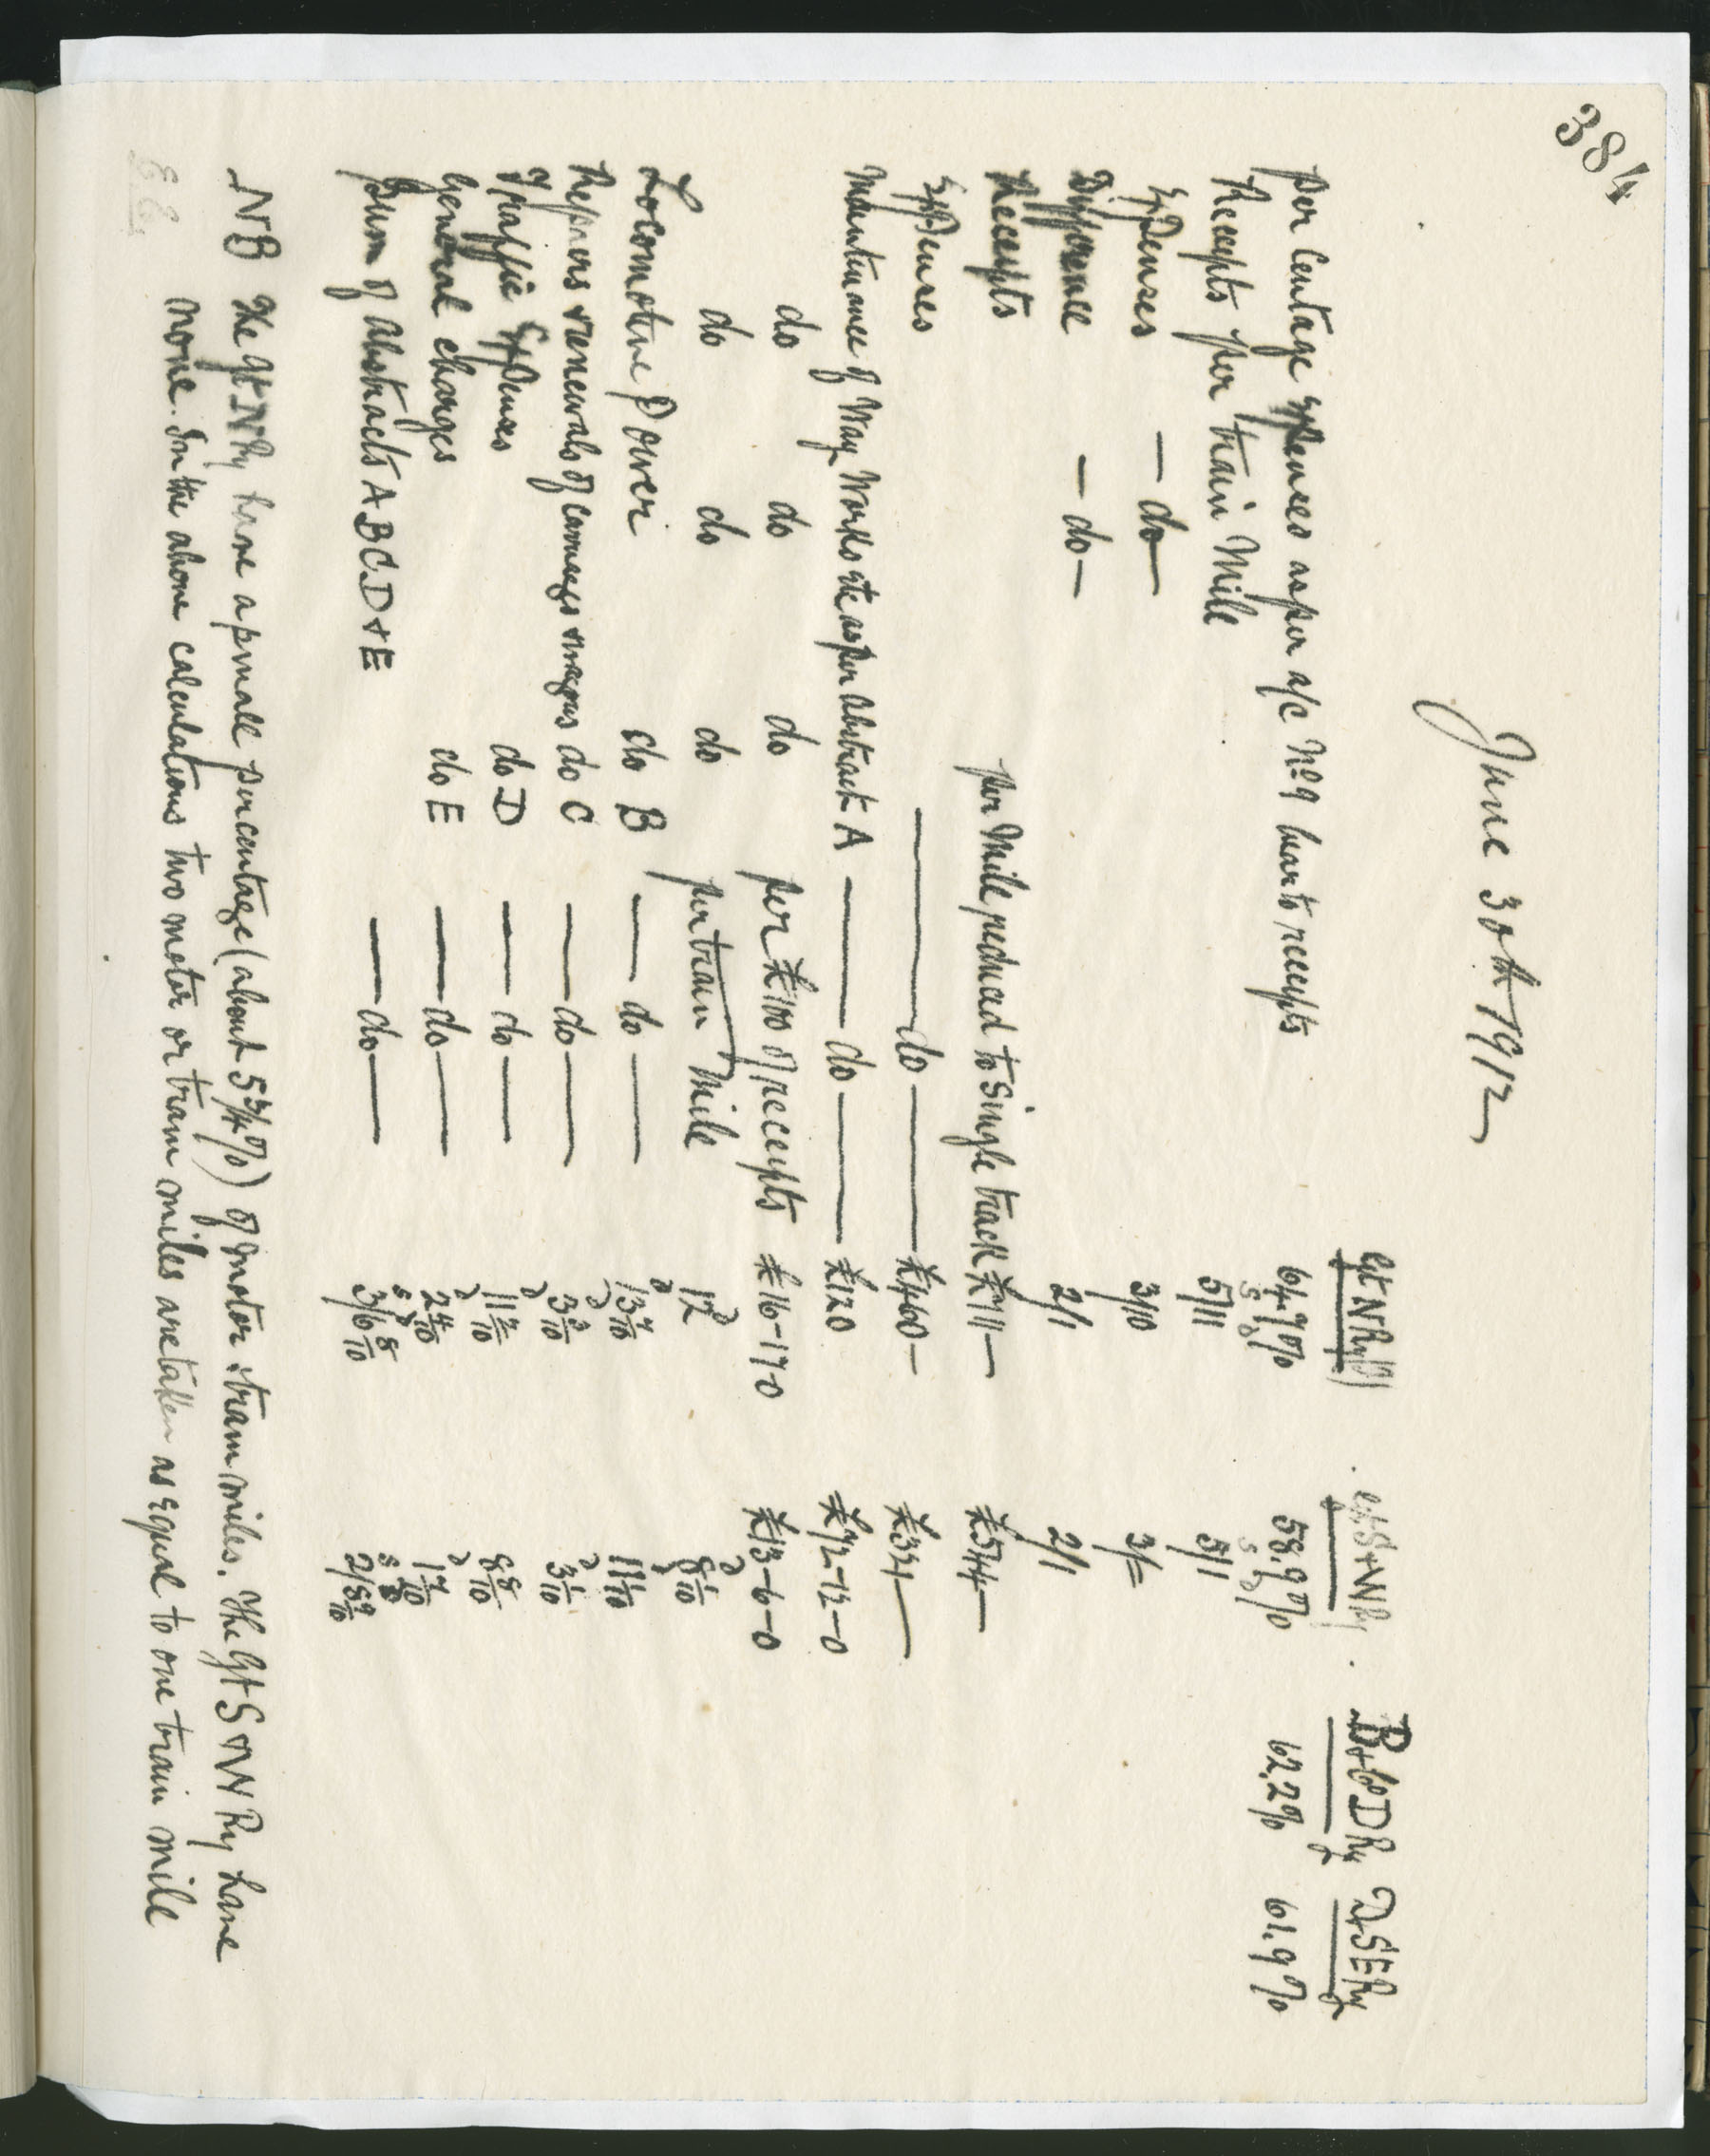 384
June 30th 1912
Gt N Ry (I) Gt S & W Ry. B & Co D Ry D & S E Ry
Per Centage Expenses as per a/c No 9 bear to receipts 64.9% 58.9% 62.2% 61.9%
Receipts per train Mile 5/11 5/1
Expenses — do — 3/10 3/=
Difference — do — 2/1 2/1
Receipts per Mile reduced to Single track £711— £544—
Expenses — do — £460— £331—
Maintenance of Way Works etc as per Abstract A — do — £120 £72-12-0
do do do per £100 of receipts £16-17-0 £13-6-0
do do do per train Mile 12d 8 1/10d
Locomotive Power do B — do — 13 7/10d 11 1/10d
Repairs & renewals of Carriages & wagons do C — do — 3 2/10d 3 1/10d
Traffic Expenses do D — do — 11 7/10d 8 8/10
General charges do E — do — 2 4/10d 1 7/10d
Sum of Abstracts A B C D & E — do — 3/6 8/10 2/8 9/10
NB The Gt N Ry have a small percentage (about 5 3/4%) of motor & tram miles. The Gt S & W Ry have
none. In the above calculations two motor or tram miles are taken as equal to one train mile